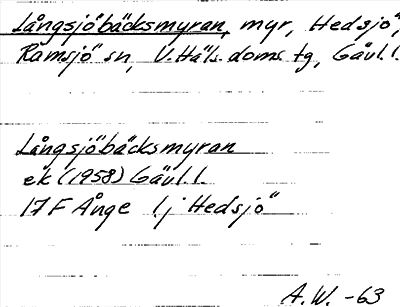 Långsjöbäcksmyran, myr, Hedsjö,
Ramsjö sn, V. Häls. doms tg, Gävl. l.
Långsjöbäcksmyran
ek (1958) Gävl. l.
17 F Ånge l.j Hedsjö
A.W. -63